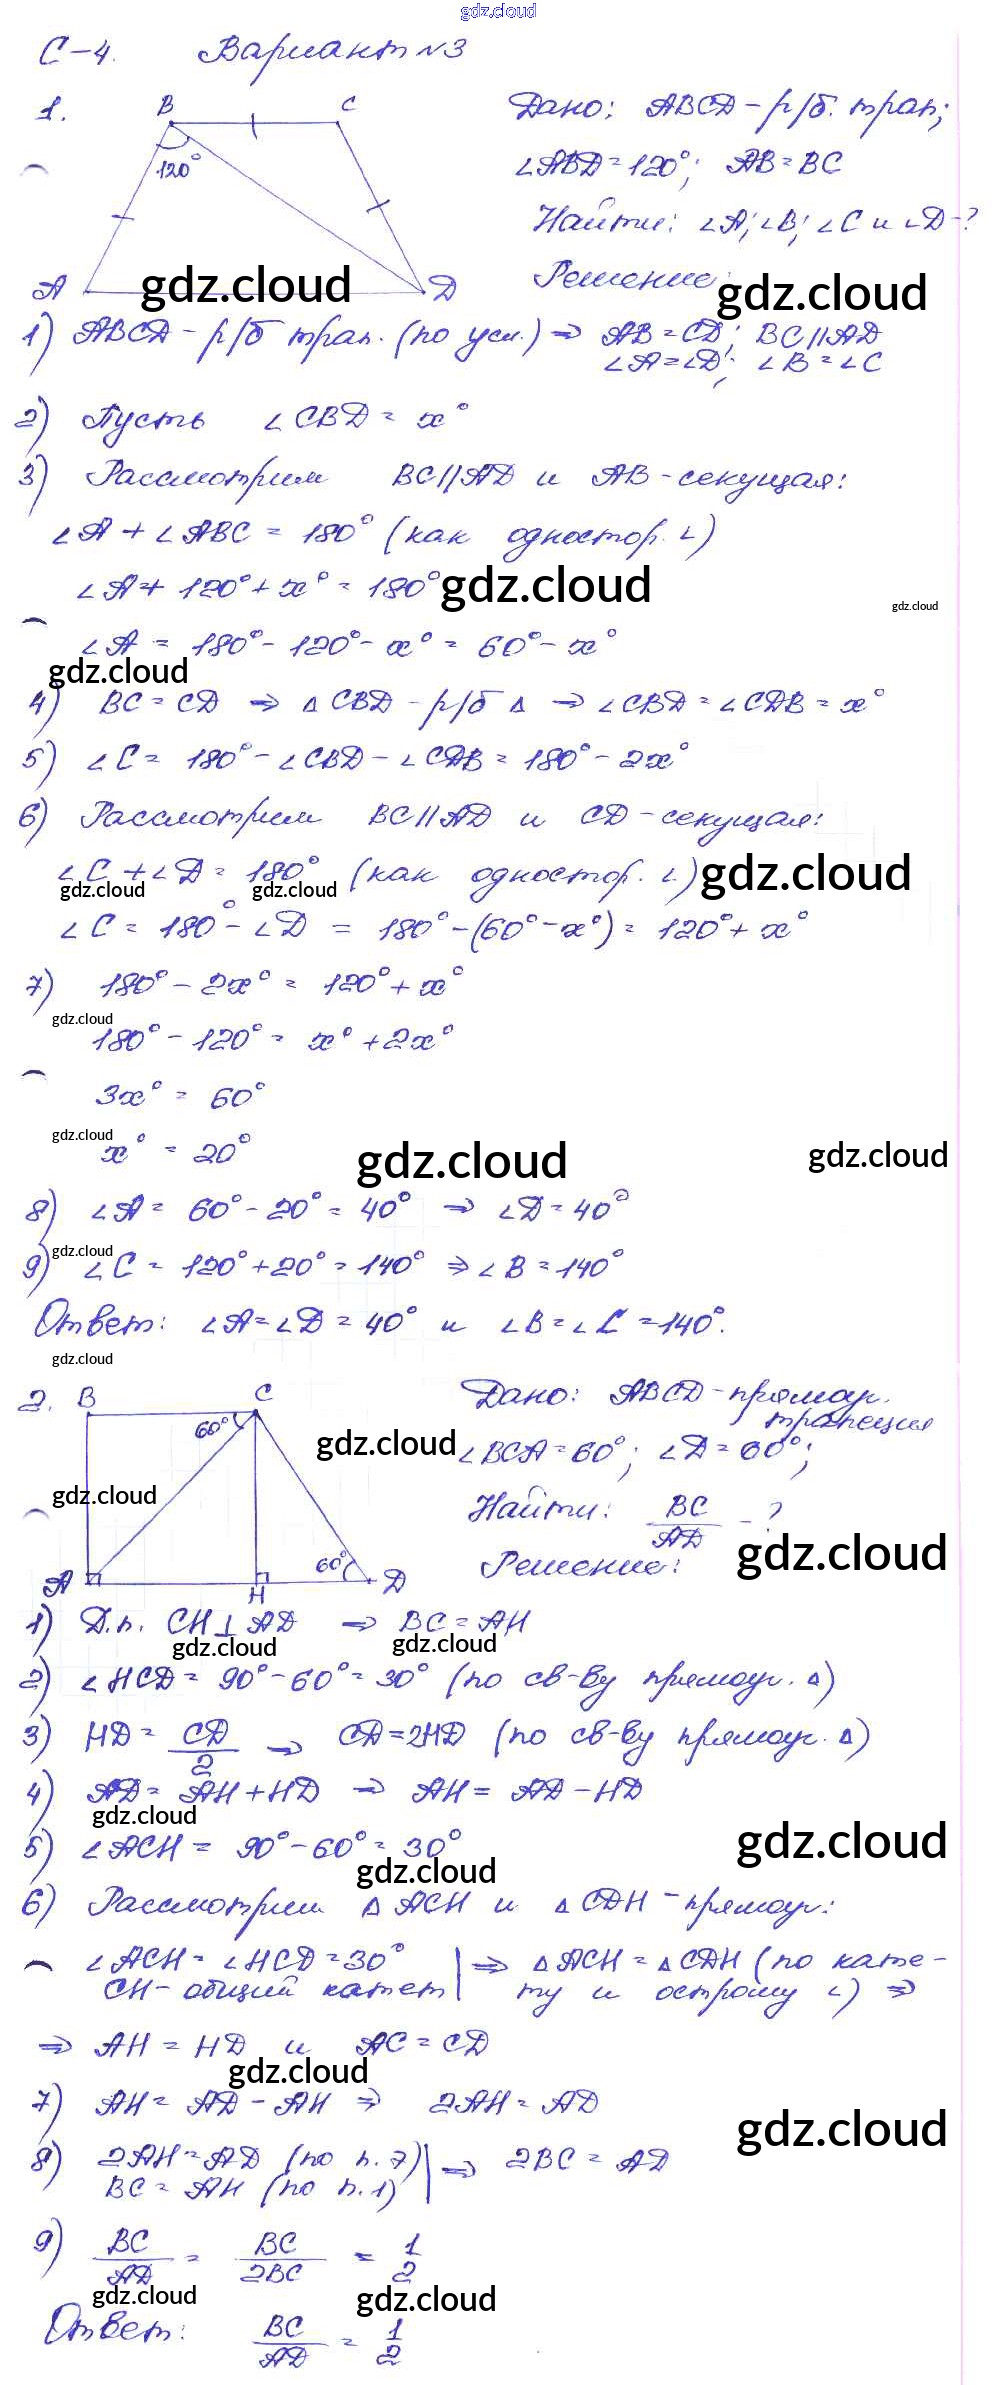 gdz.cloud
С-4. Вариант №3
1.
B C
120°
A D
Дано: ABCD - р/б. трап;
∠ABD = 120°; AB = BC
Найти: ∠A; ∠B; ∠C и ∠D - ?
Решение:
gdz.cloud gdz.cloud
1) ABCD - р/б трап. (по усл.) ⇒ AB = CD; BC || AD
∠A = ∠D; ∠B = ∠C
2) Пусть ∠CBD = x°
3) Рассмотрим BC || AD и AB - секущая:
∠A + ∠ABC = 180° (как одностор. ∠)
∠A + 120° + x° = 180°
gdz.cloud
gdz.cloud
∠A = 180° - 120° - x° = 60° - x°
gdz.cloud
4) BC = CD ⇒ Δ CBD - р/б Δ ⇒ ∠CBD = ∠CDB = x°
5) ∠C = 180° - ∠CBD - ∠CDB = 180° - 2x°
6) Рассмотрим BC || AD и CD - секущая:
∠C + ∠D = 180° (как одностор. ∠)
gdz.cloud gdz.cloud gdz.cloud
∠C = 180° - ∠D = 180° - (60° - x°) = 120° + x°
7) 180° - 2x° = 120° + x°
gdz.cloud
180° - 120° = x° + 2x°
3x° = 60°
gdz.cloud
x° = 20°
gdz.cloud gdz.cloud
8) ∠A = 60° - 20° = 40° ⇒ ∠D = 40°
gdz.cloud
9) ∠C = 120° + 20° = 140° ⇒ ∠B = 140°
Ответ: ∠A = ∠D = 40° и ∠B = ∠C = 140°.
gdz.cloud
2.
B C
60°
A H D
60°
Дано: ABCD - прямоуг. трапеция
∠BCA = 60°; ∠D = 60°;
gdz.cloud
gdz.cloud
Найти: BC/AD - ?
Решение:
gdz.cloud
1) Д.п. CH ⊥ AD ⇒ BC = AH
gdz.cloud gdz.cloud
2) ∠HCD = 90° - 60° = 30° (по св-ву прямоуг. Δ)
3) HD = CD/2 ⇒ CD = 2HD (по св-ву прямоуг. Δ)
4) AD = AH + HD ⇒ AH = AD - HD
gdz.cloud gdz.cloud
5) ∠ACH = 90° - 60° = 30°
gdz.cloud
6) Рассмотрим Δ ACH и Δ CDH - прямоуг:
∠ACH = ∠HCD = 30° | ⇒ Δ ACH = Δ CDH (по кате-
CH - общий катет | ту и острому ∠) ⇒
⇒ AH = HD и AC = CD
gdz.cloud
7) AH = AD - AH ⇒ 2AH = AD
gdz.cloud
8) 2AH = AD (по п. 7) | ⇒ 2BC = AD
BC = AH (по п. 1) |
9) BC/AD = BC/2BC = 1/2
gdz.cloud gdz.cloud
Ответ: BC/AD = 1/2